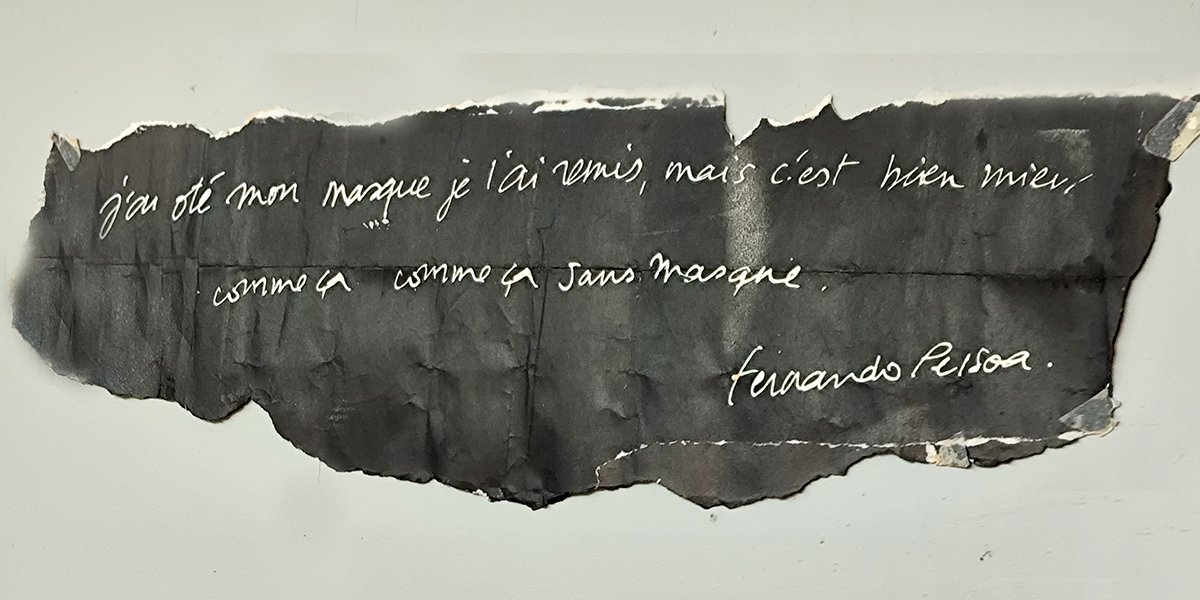 j'ai oté mon masque je l'ai remis, mais c'est bien mieux
comme ça comme ça sans masque.
Fernando Pessoa.